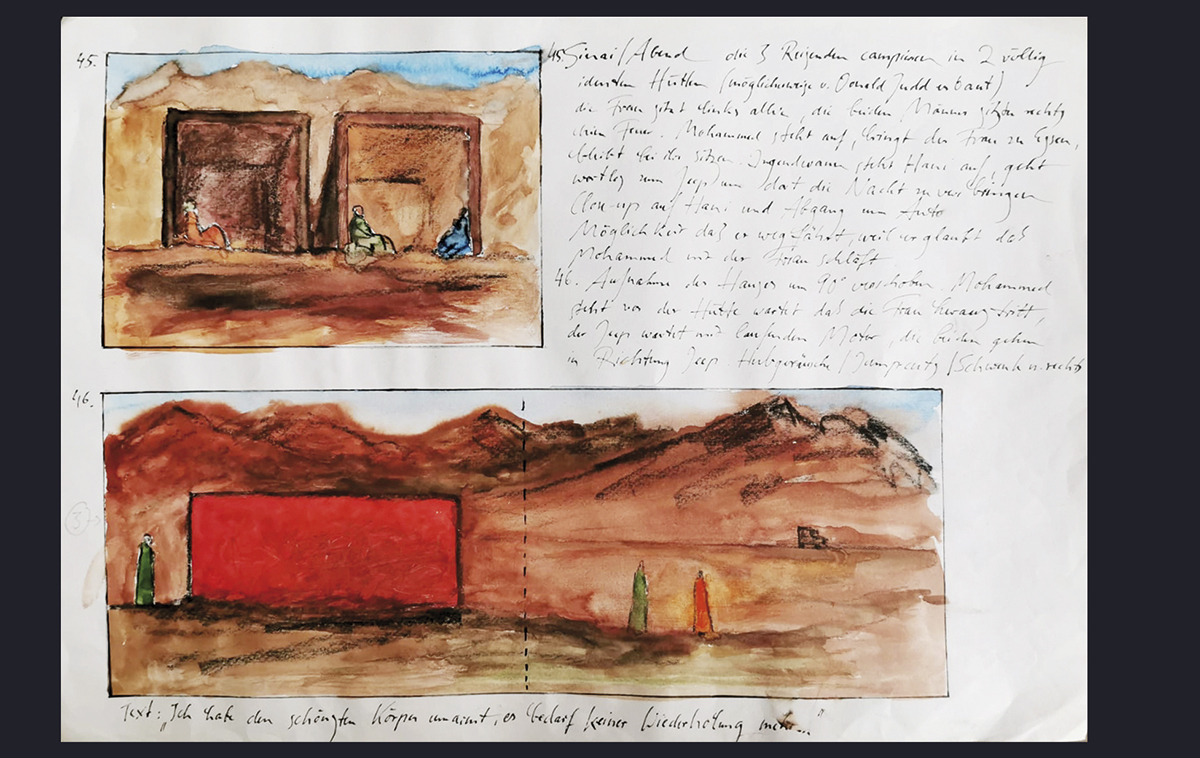 45.
45. Sinai / Abend die 3 Reisenden campieren in 2 völlig
identen Hütten (möglicherweise v. Donald Judd erbaut)
die Frau sitzt links allein, die beiden Männer sitzen rechts
beim Feuer. Mohammed steht auf, bringt der Frau zu Essen,
bleibt bei ihr sitzen. Irgendwann steht Hani auf, geht
wortlos zum Jeep um dort die Nacht zu verbringen
Close-up auf Hani und Abgang zum Auto
Möglichkeit daß er wegfährt, weil er glaubt daß
Mohammed mit der Frau schläft
46. Aufnahme des Hauses um 90° verschoben. Mohammed
steht vor der Hütte wartet daß die Frau heraustritt,
der Jeep wartet mit laufenden Motor die beiden gehen
in Richtung Jeep / Schwenk n. rechts
46.
3
Text: "Ich habe den schönsten Körper umarmt, es bedarf keiner Wiederholung mehr..."